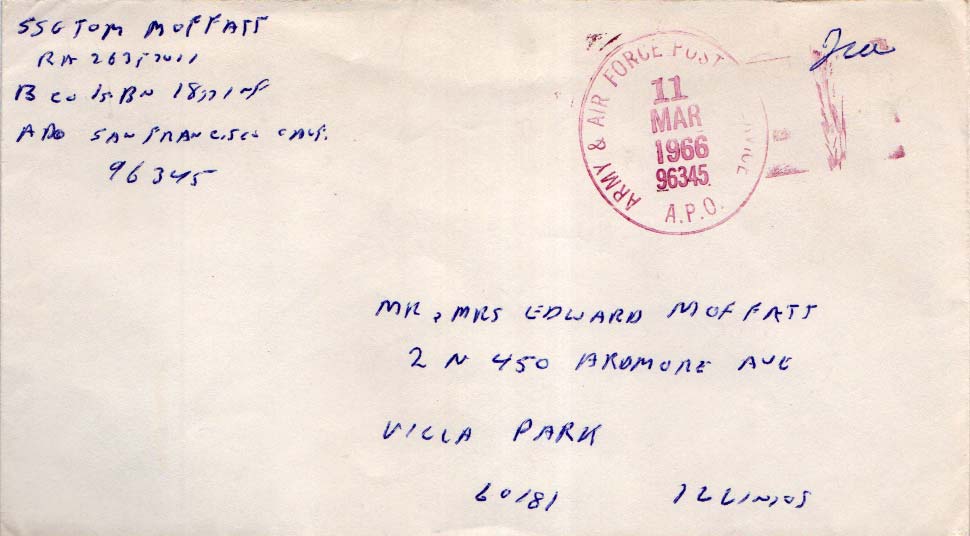 SSG TOM MOFFATT
RA
B CO 1st BN 18th INF
APO SAN FRANCISCO CALIF.
96345
Free
ARMY & AIR FORCE POST
11
MAR
1966
96345
A.P.O.
MR & MRS EDWARD MOFFATT
2 N 450 ARDMORE AVE
VILLA PARK
60181 ILLINIOS